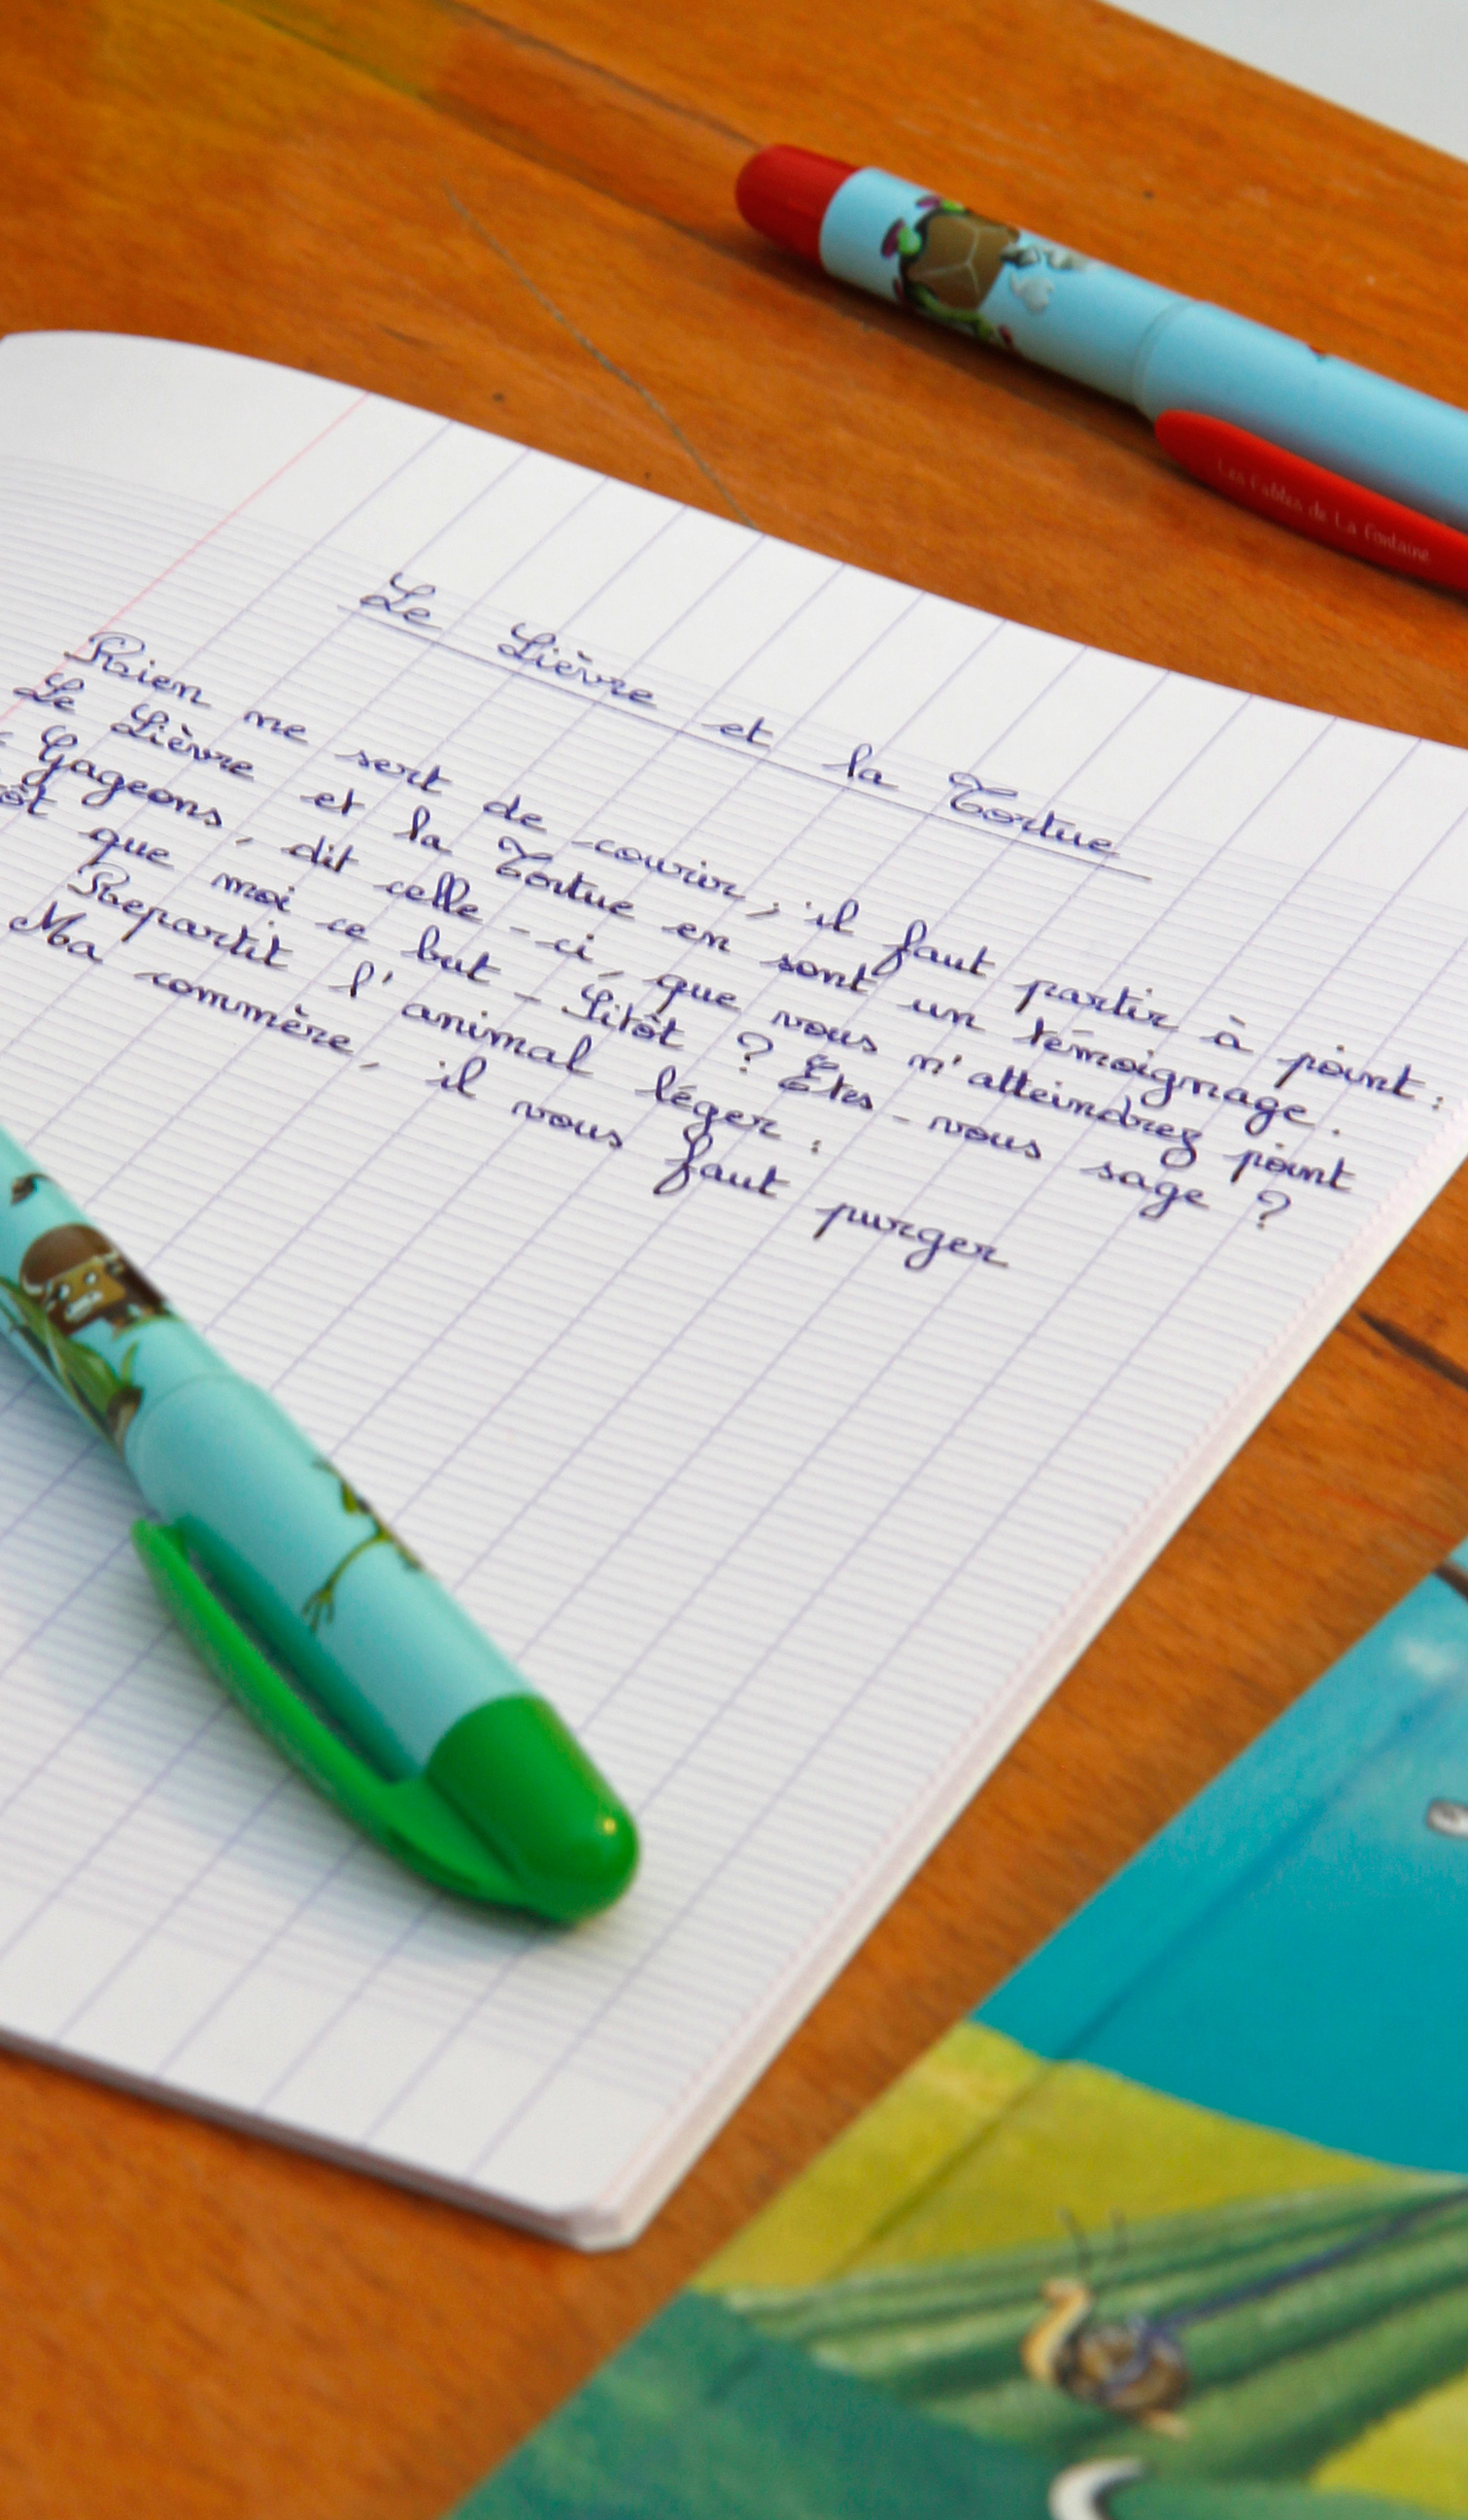 Les Fables de La Fontaine
Le Lièvre et la Tortue
Rien ne sert de courir ; il faut partir à point :
Le Lièvre et la Tortue en sont un témoignage.
- Gageons, dit celle-ci, que vous n'atteindrez point
ôt que moi ce but - Sitôt ? Êtes-vous sage ?
Repartit l'animal léger :
Ma commère, il vous faut purger